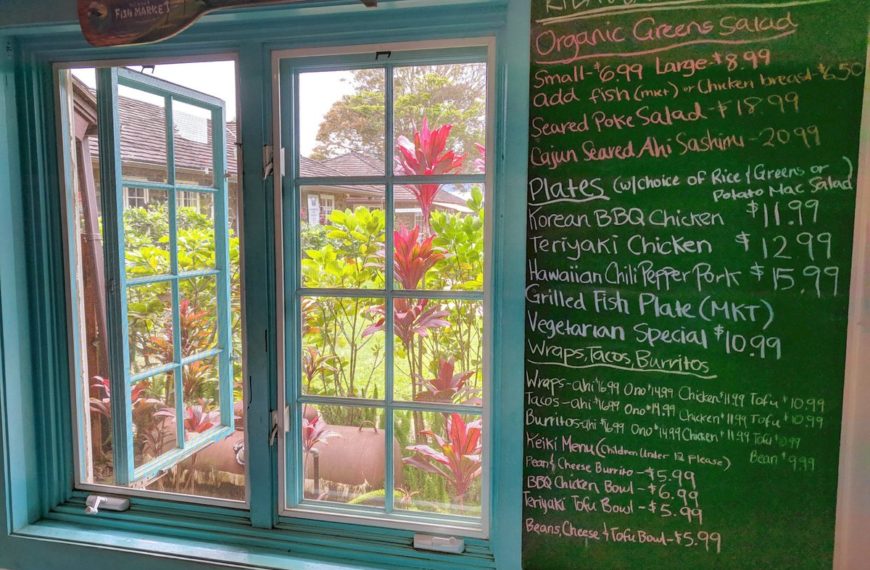 FISH MARKET
Organic Greens Salad
Small-$6.99 Large-$8.99
add fish (mkt) or Chicken breast-$6.50
Seared Poke Salad-$18.99
Cajun Seared Ahi Sashimi-20.99
Plates (w/choice of Rice & Greens or
Potato Mac Salad)
Korean BBQ Chicken $11.99
Teriyaki Chicken $12.99
Hawaiian Chili Pepper Pork $15.99
Grilled Fish Plate (MKT)
Vegetarian Special $10.99
Wraps, Tacos, Burritos
Wraps-ahi $16.99 Ono $14.99 Chicken $11.99 Tofu $10.99
Tacos-ahi $16.99 Ono $14.99 Chicken $11.99 Tofu $10.99
Burritos-ahi $16.99 Ono $14.99 Chicken $11.99 Tofu $10.99
Bean $9.99
Keiki Menu (Children Under 12 please)
& Cheese Burrito-$5.99
BBQ Chicken Bowl-$6.99
Teriyaki Tofu Bowl-$5.99
Beans, Cheese & Tofu Bowl-$5.99